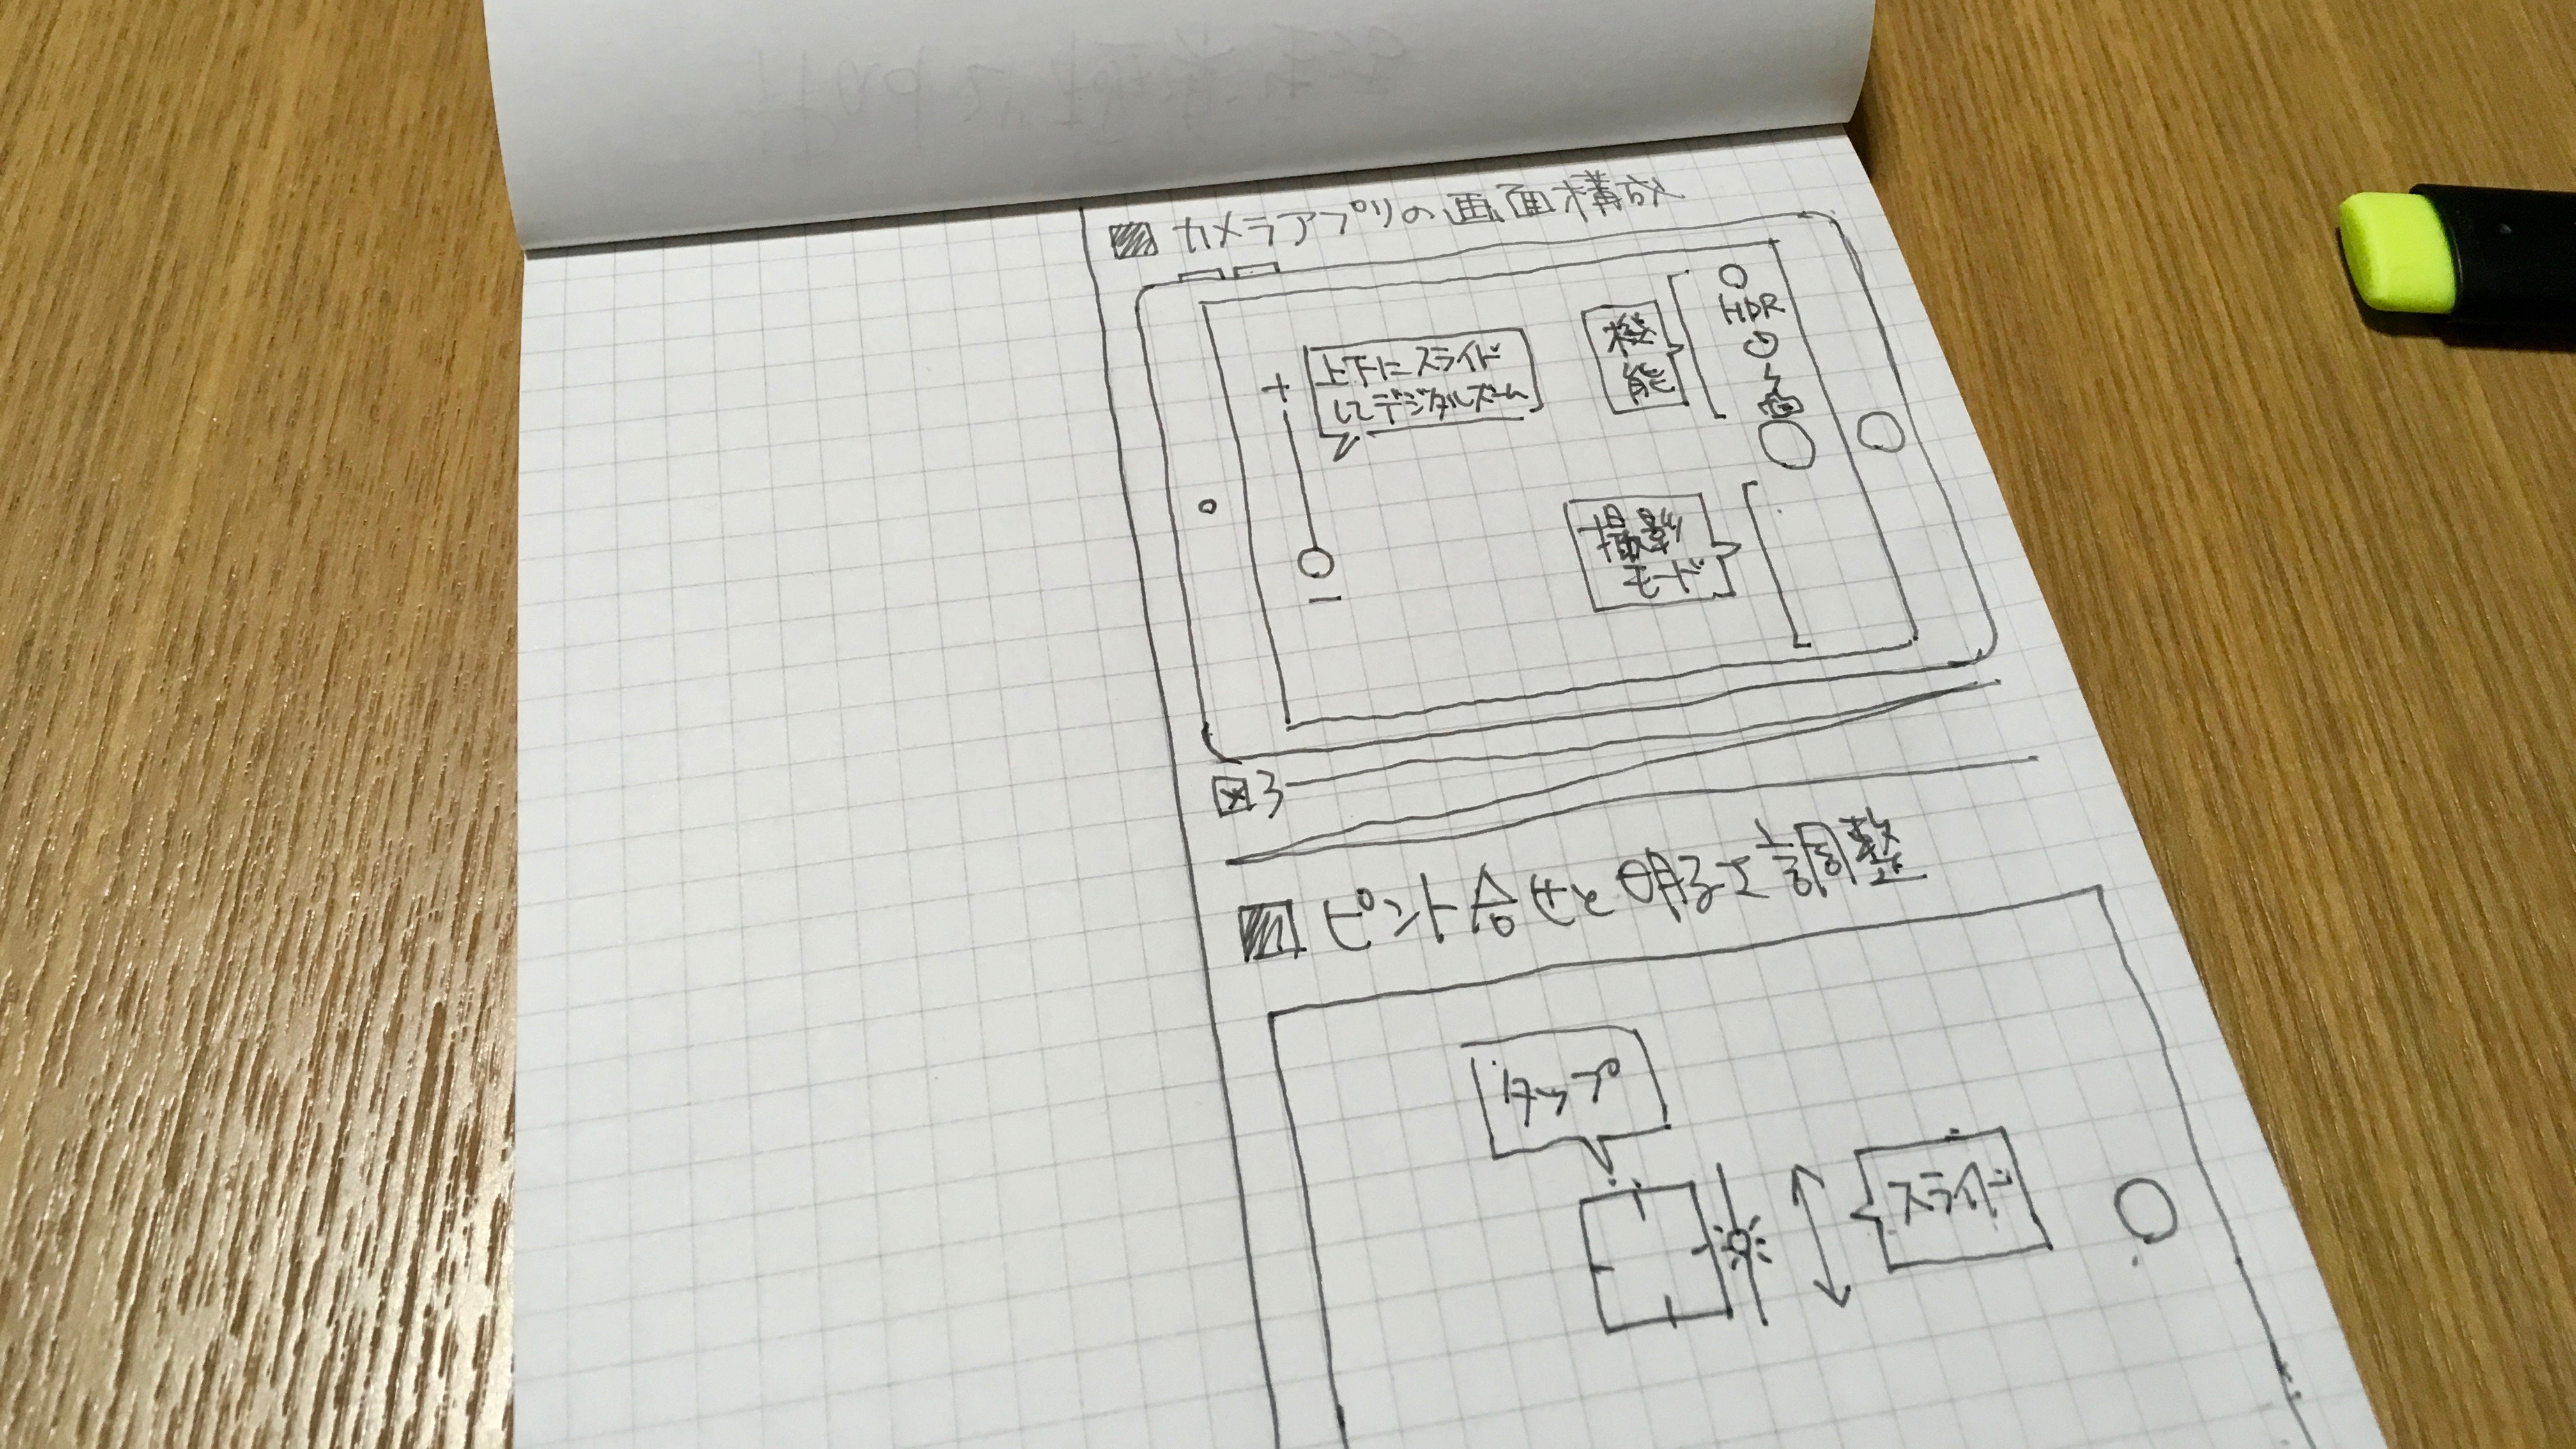 カメラアプリの画面構成
上下にスライド
してデジタルズーム
+
−
機
能
HDR
撮影
モード
図3
ピント合せと明るさ調整
タップ
スライド